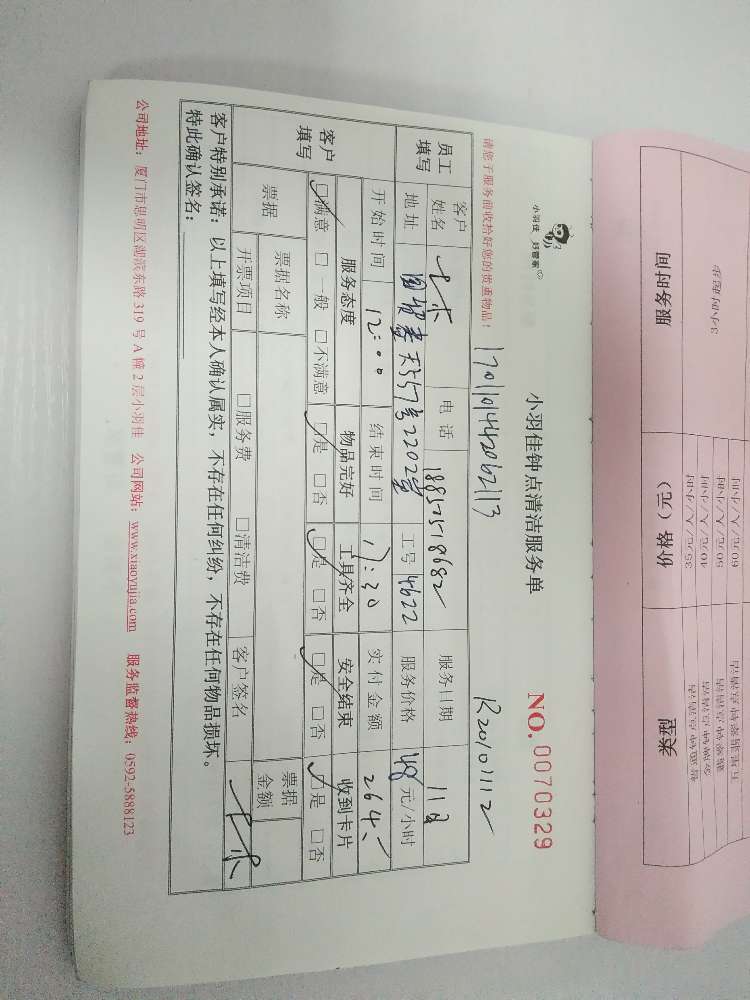 小羽佳 好管家
小羽佳钟点清洁服务单
NO. 0070329
请您于服务前收拾好您的贵重物品！
17011014442062113
R20101112
员工填写
客户姓名
电话 18857518682
服务日期 11日
地址 国贸春天557号2202室
工号 4622
服务价格 48 元/小时
开始时间 12:00
结束时间 17:30
实付金额 264
客户填写
服务态度 物品完好 工具齐全 安全结束 收到卡片
☑满意 □一般 □不满意 ☑是 □否 ☑是 □否 ☑是 □否 ☑是 □否
票据
票据名称
票据金额
开票项目 □服务费 □清洁费 客户签名
客户特别承诺：以上填写经本人确认属实，不存在任何纠纷，不存在任何物品损坏。
特此确认签名：
公司地址：厦门市思明区湖滨东路 319 号 A 幢 2 层小羽佳 公司网站：www.xiaoyujia.com 服务监督热线：0592-5888123
服务时间 价格（元） 类型
3小时起步
35元/人/小时
40元/人/小时
50元/人/小时
60元/人/小时